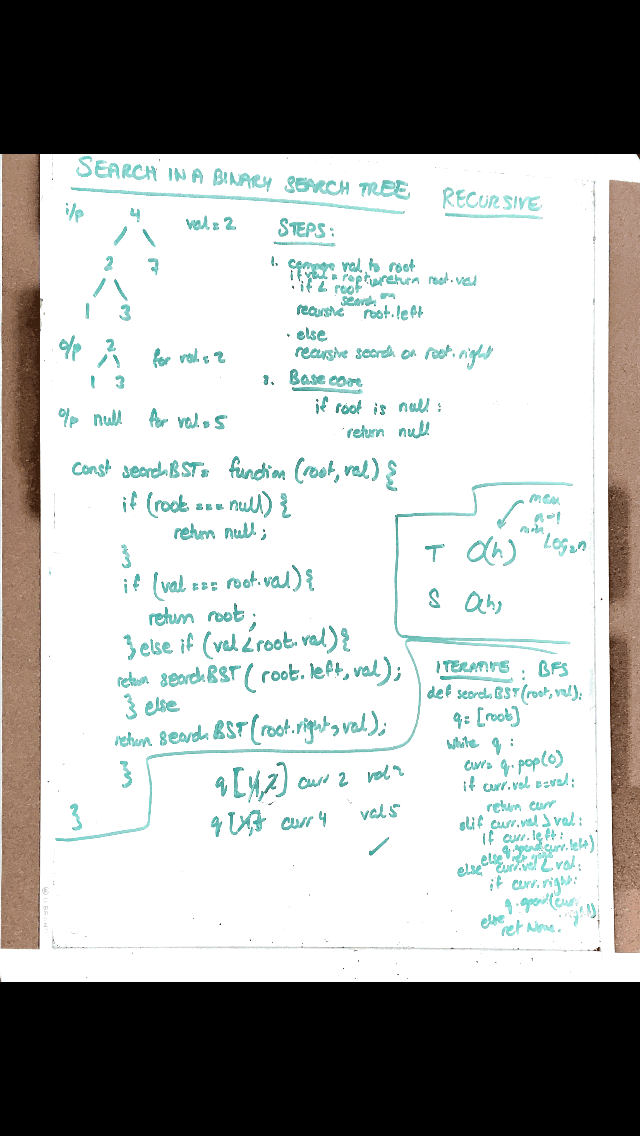 SEARCH IN A BINARY SEARCH TREE RECURSIVE
i/p 4 val = 2
2 7
1 3
o/p 2 for val = 2
1 3
o/p null for val = 5
STEPS:
1. compare val to root
if val = root, return root.val
· if < root
search on
recursive root.left
· else
recursive search on root.right
2. Base case
if root is null :
return null
const searchBST = function (root, val) {
if (root === null) {
return null;
}
if (val === root.val) {
return root;
} else if (val < root.val) {
return searchBST (root.left, val);
} else
return searchBST (root.right, val);
}
}
T O(h) Log₂n
S O(h)
ITERATIVE : BFS
def searchBST(root, val):
q = [root]
while q :
curr = q.pop(0)
if curr.val == val:
return curr
elif curr.val > val:
if curr.left:
q.append(curr.left)
else
else curr.val < val:
if curr.right:
q.append(curr.right)
else
ret None.
q [4, 2] curr 2 val 2
q curr 4 val 5